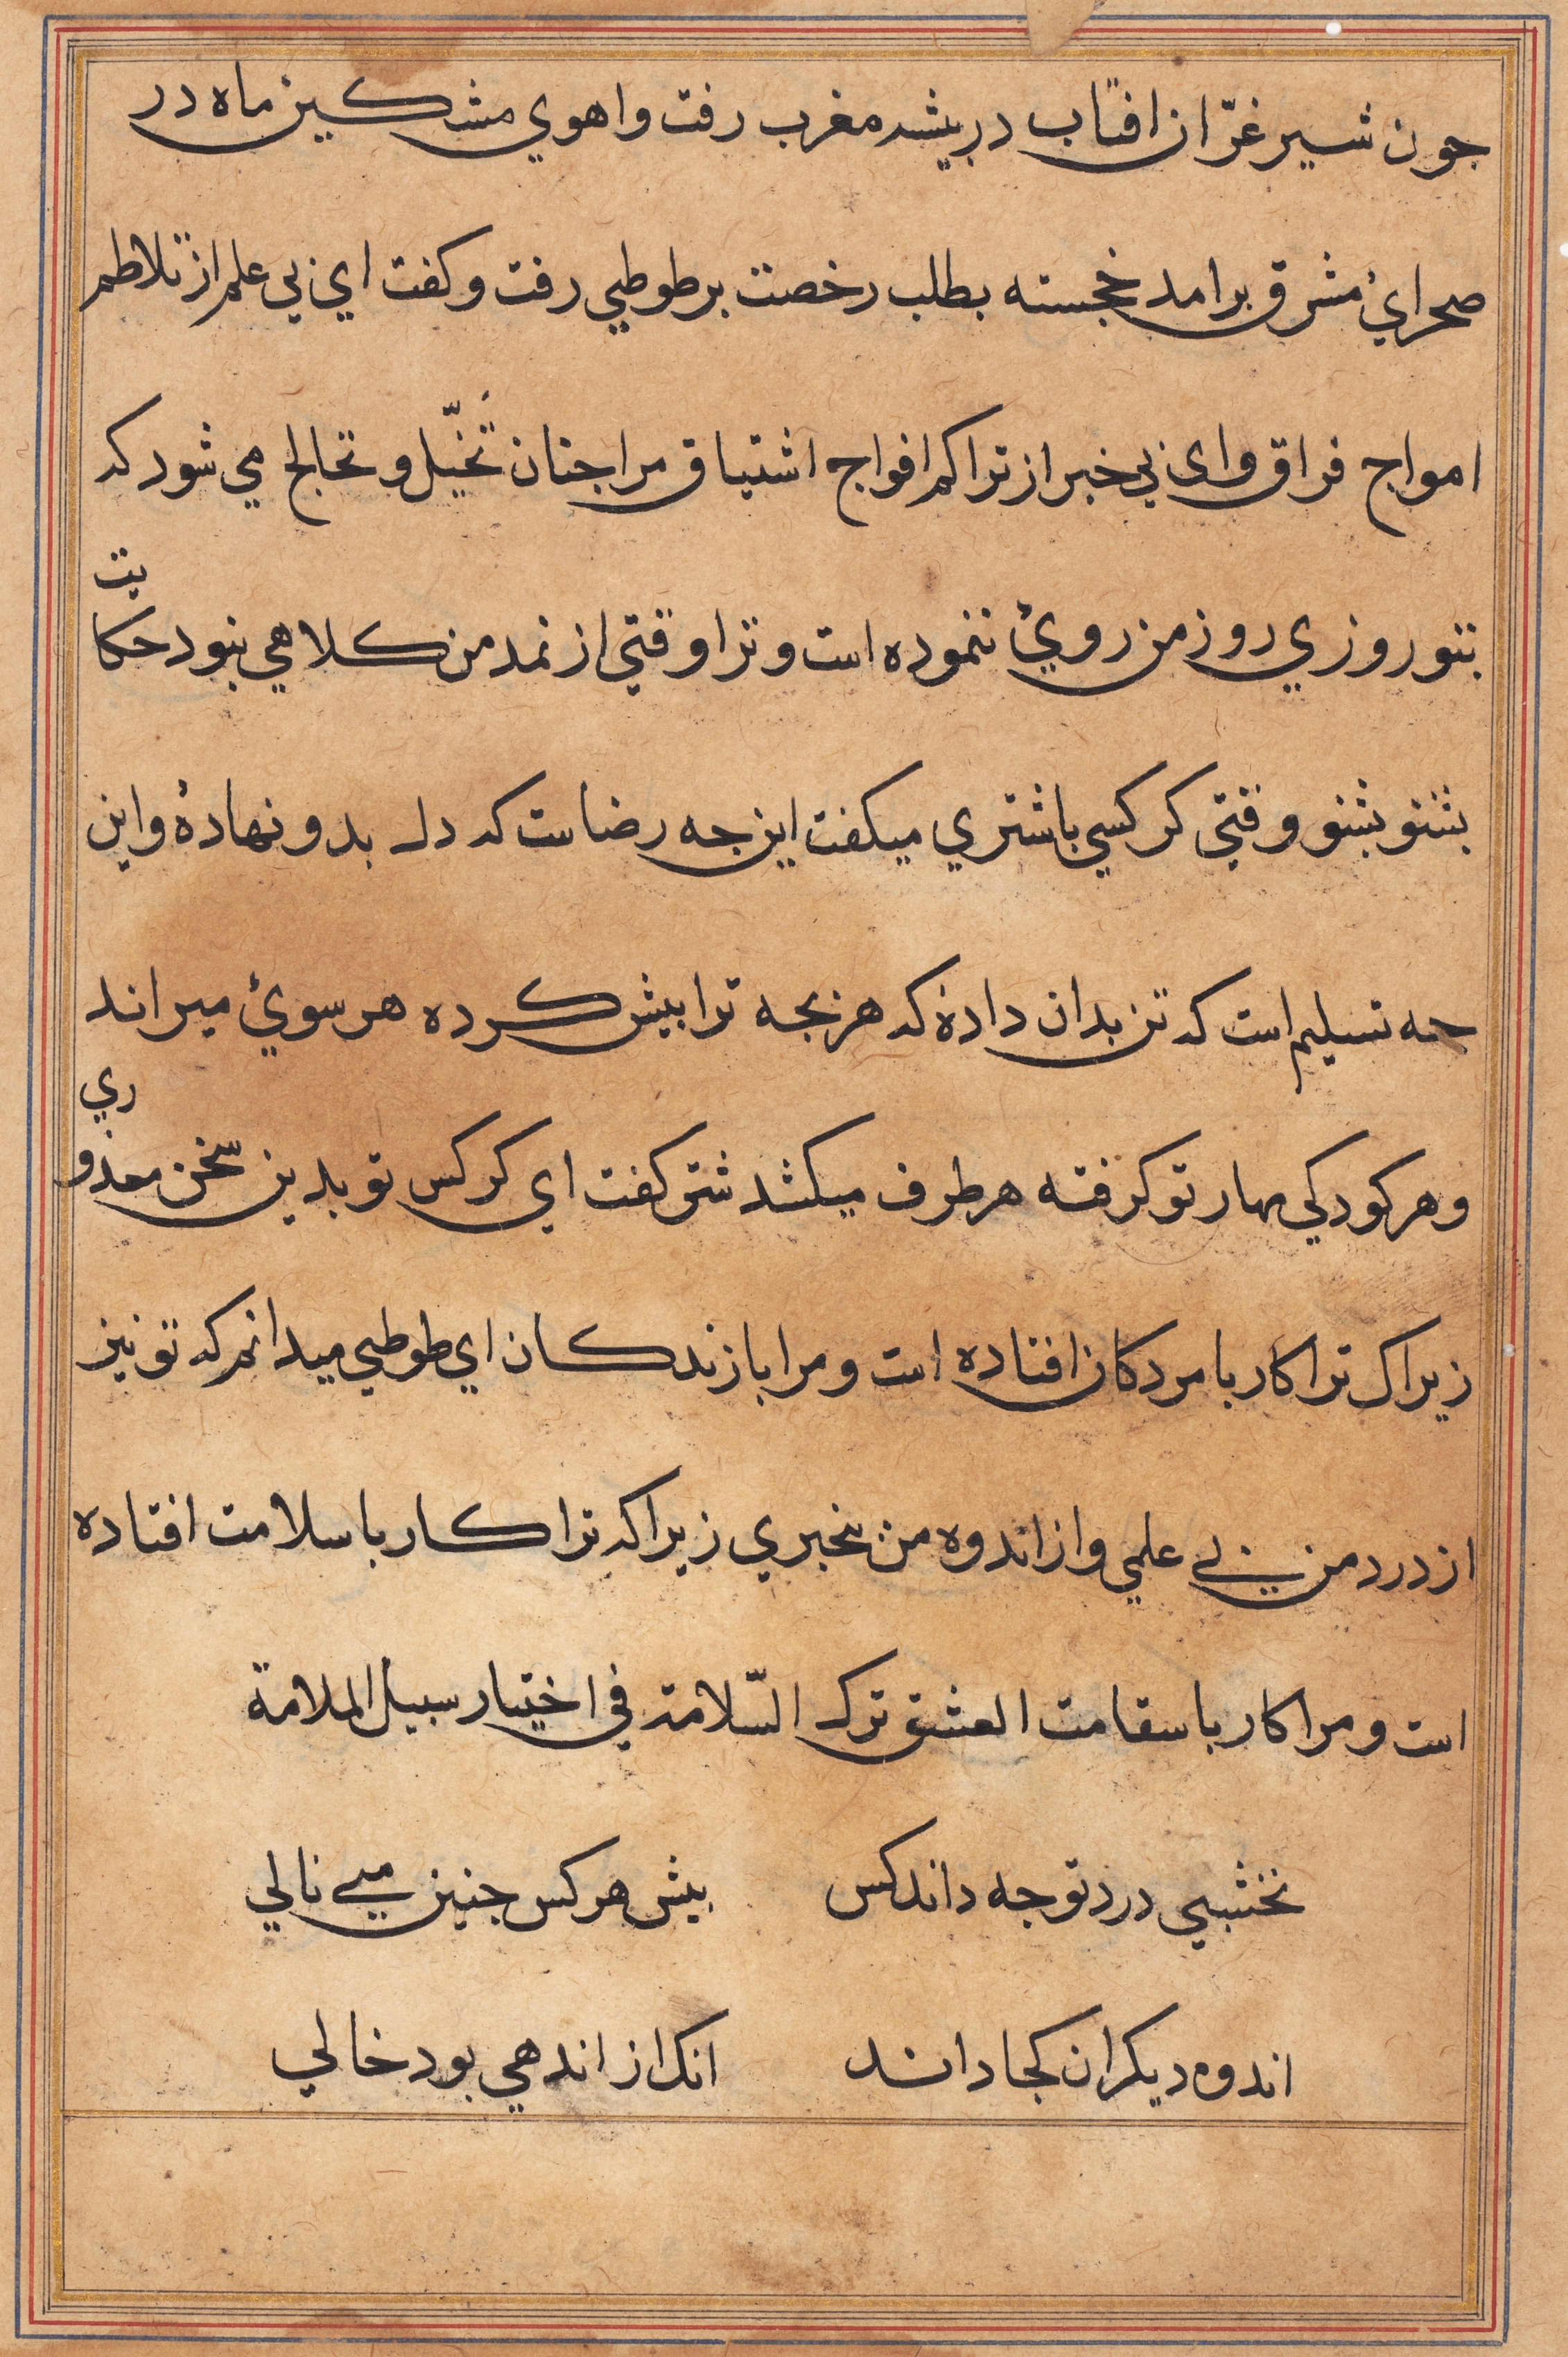 جون شیر غرّان افتاب در بیشه مغرب رفت و اهوي مشکین ماه در
صحرائ مشرق برامد خجسته بطلب رخصت بر طوطي رفت و کفت اي بي علم از تلاطم
امواج فراق و ای بي خبر از تراکم افواج اشتیاق مرا جنان تخیّل و تخالج مي شود که
بتو روزي روز من روئ ننموده است و ترا وقتي از نمد من کلاهي نبود حکا
یت
بشنو بشنو وقتي کرکسي با شتري میکفت این جه رضاست که دل بدو نهادهٔ و این
جه تسلیم است که تن بدان دادهٔ که هر بجه ترا بیش کرده هر سوئ میراند
و هر کودکي مهار تو کرفته هر طرف میکشد شتر کفت اي کرکس تو بدین سخن معذو
ري
زیراک ترا کار با مردکان افتاده است و مرا با زندکان اي طوطي میدانم که تو نیز
از درد من بي علمي و از اندوه من بیخبري زیرا که ترا کار با سلامت افتاده
است و مرا کار با سقامت العشق ترک السّلامة في اختیار سبیل الملامة
نخشبي درد تو جه داند کس بیش هر کس جنین مي نالي
اندوه دیکران کجا داند انک از اندهي بود خالي